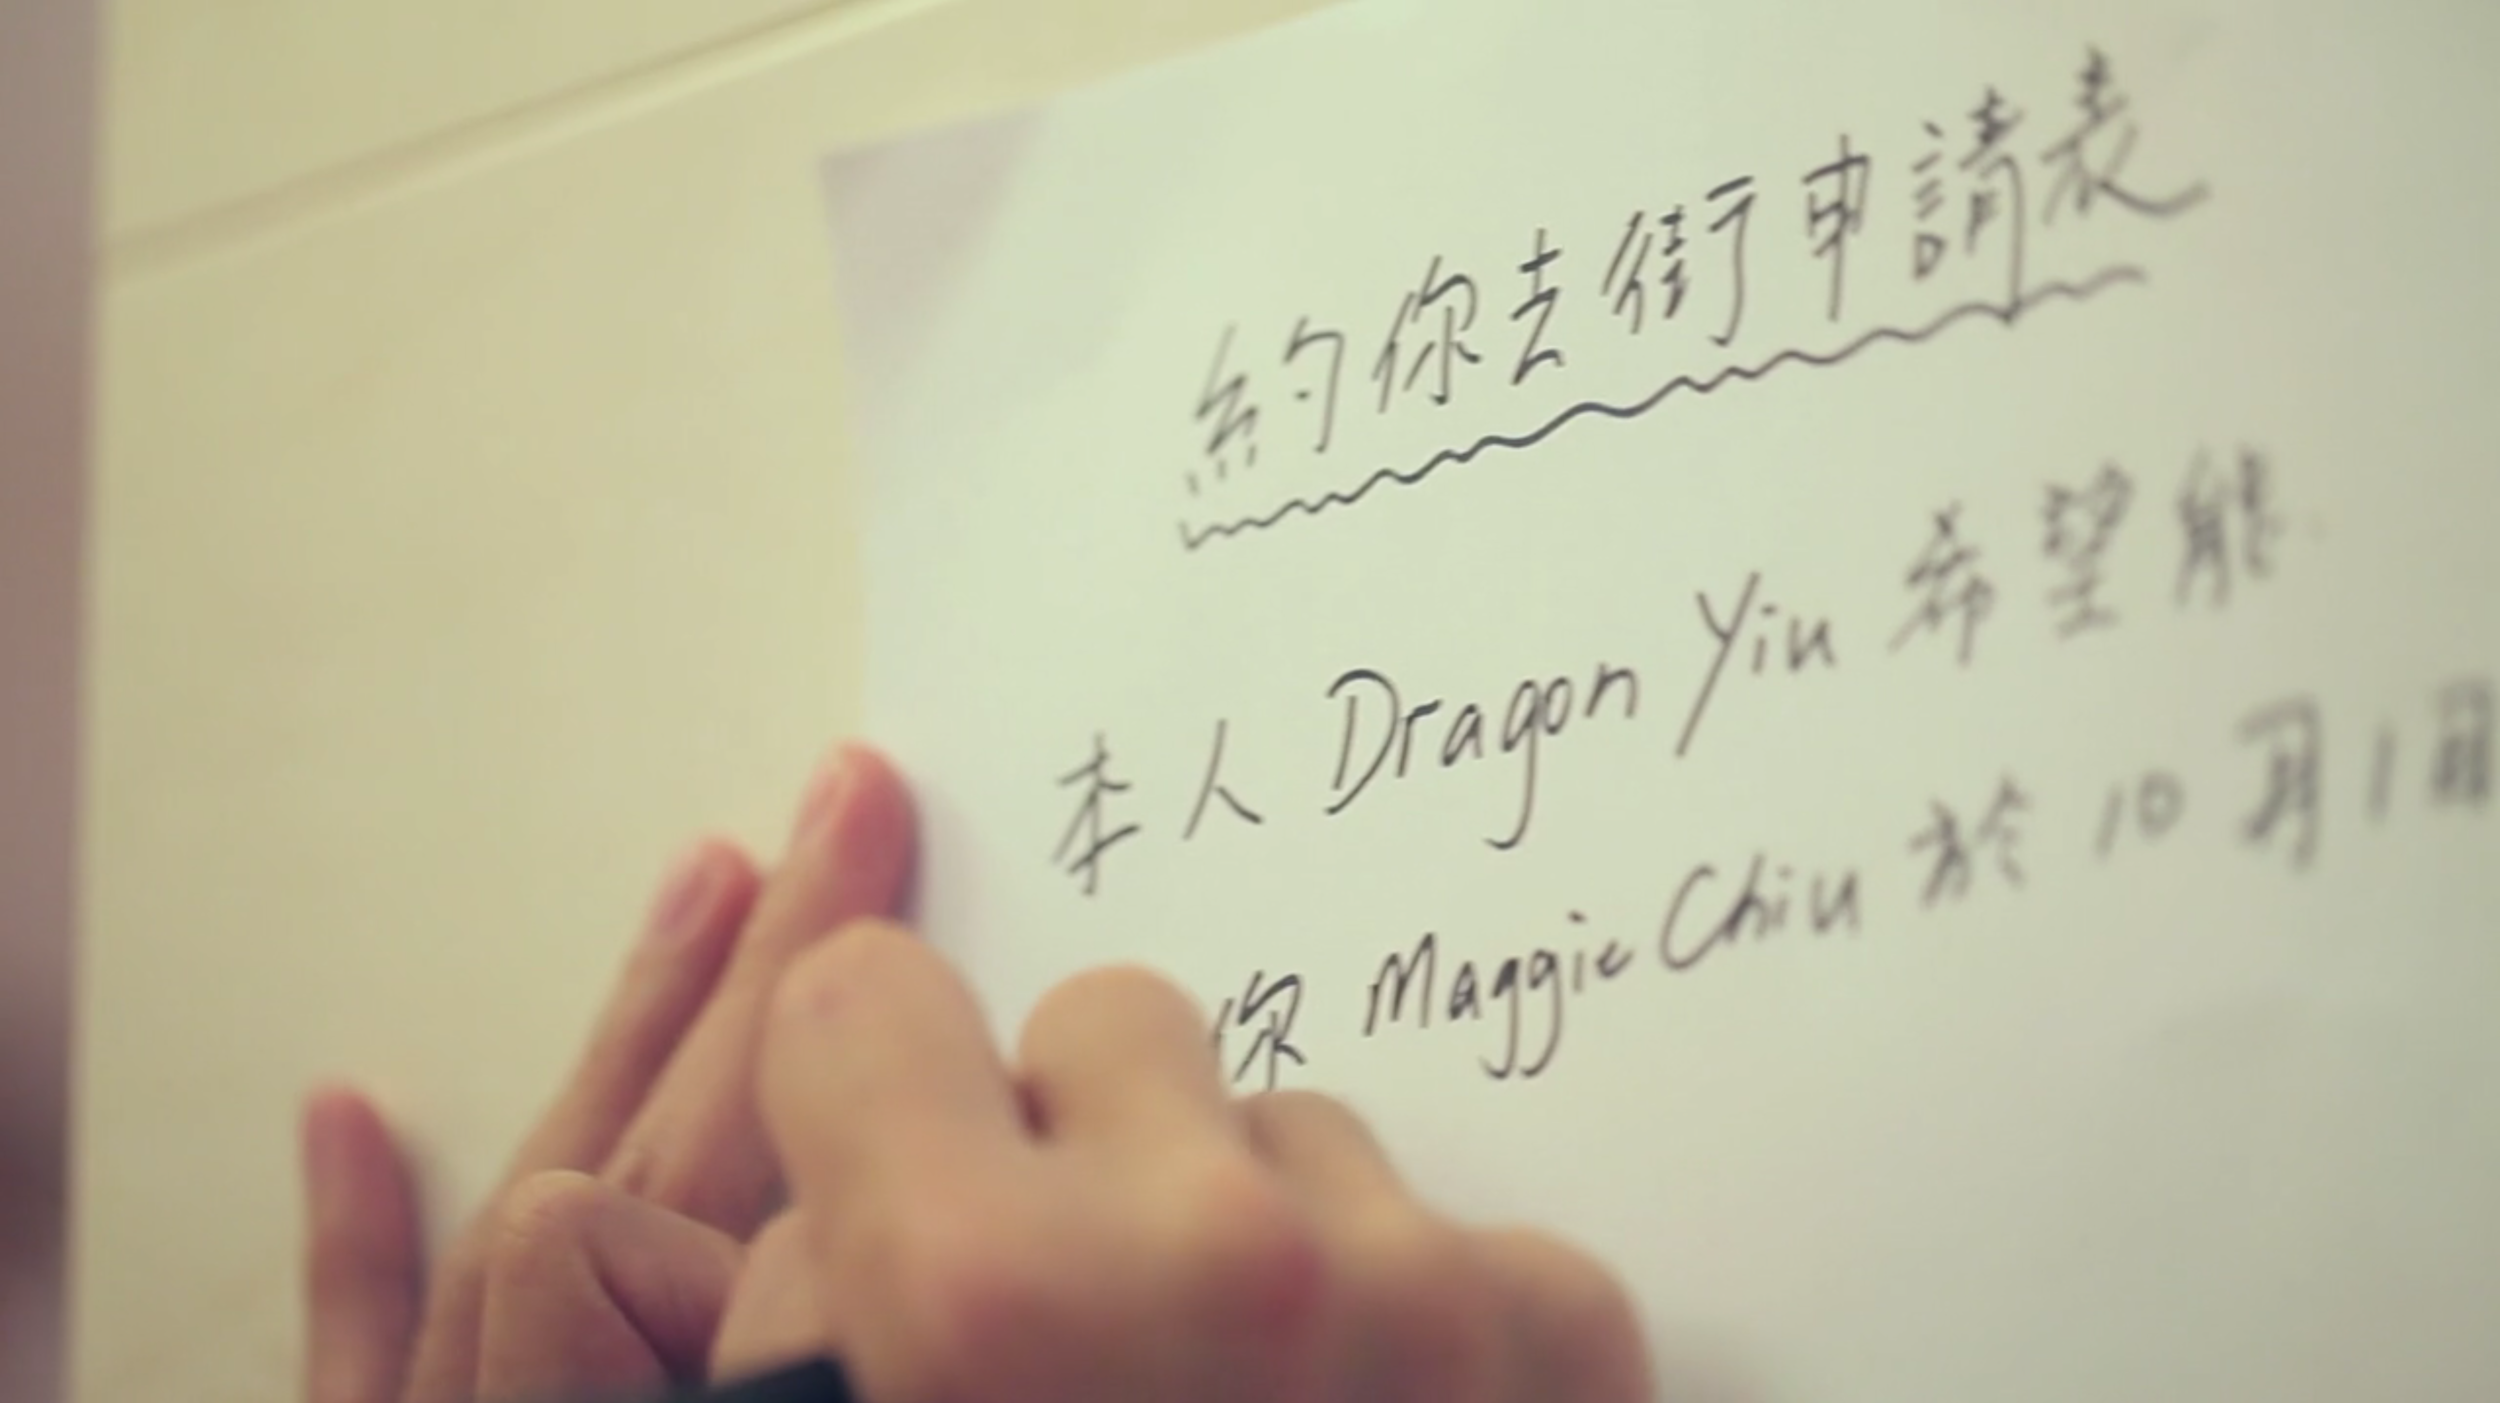 約你去街申請表
本人 Dragon Yiu 希望能
你 Maggie Chiu 於 10月1日